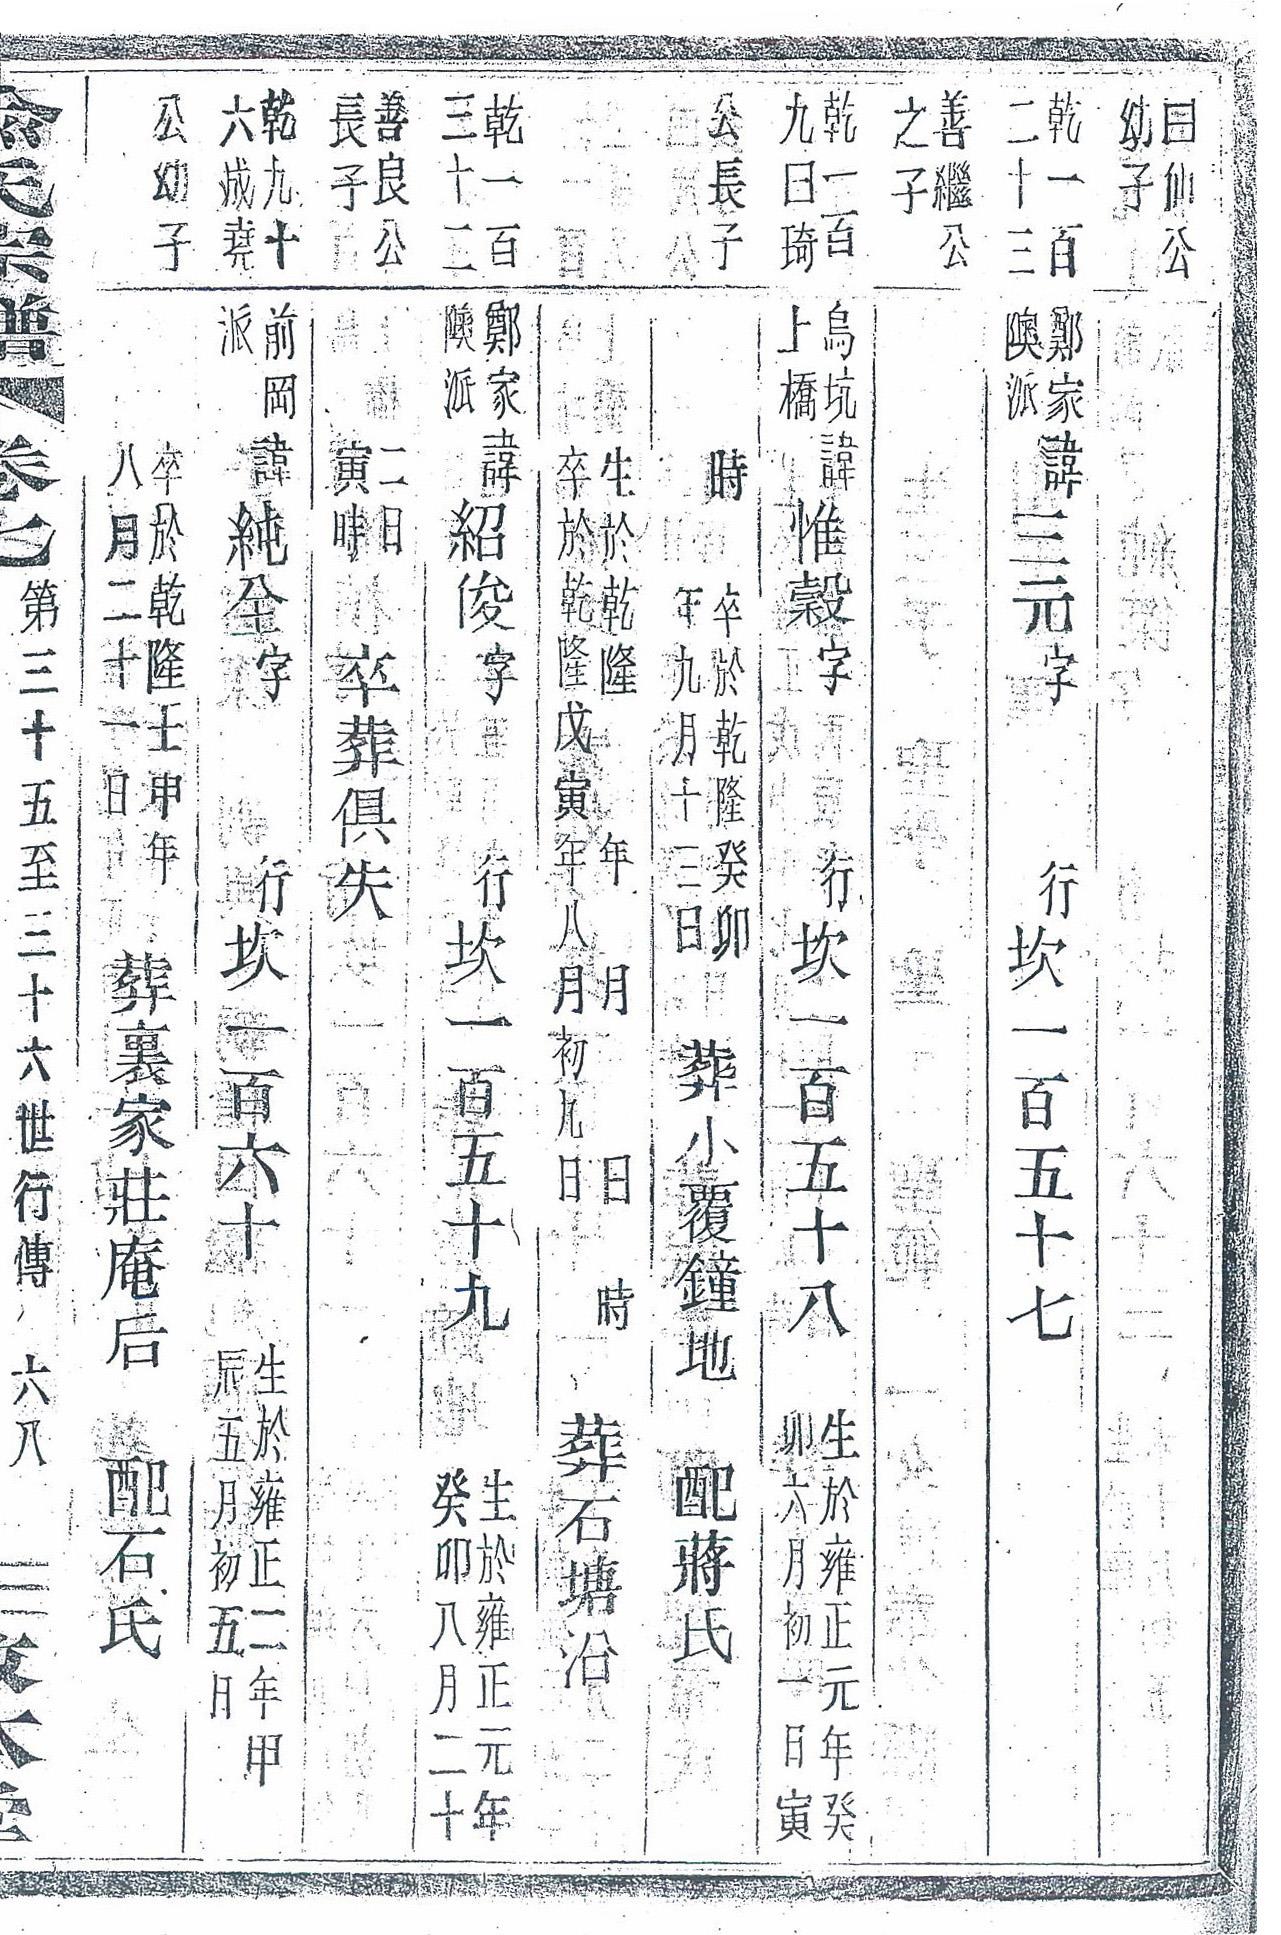 曰仙公
幼子
乾一百
二十三
鄭家
隩派
諱三元字 行坎一百五十七
善繼公
之子
乾一百
九曰琦
烏坑
上橋
諱惟穀字 行坎一百五十八
生於雍正元年癸
卯六月初一日寅
公長子
時
卒於乾隆癸卯
年九月十三日
葬小覆鐘地 配蔣氏
生於乾隆 年 月 日 時
卒於乾隆戊寅年八月初九日
葬石塘沿
乾一百
三十二
鄭家
隩派
諱紹俊字 行坎一百五十九
生於雍正元年
癸卯八月二十
善良公
長子
二日
寅時
卒葬俱失
乾九十
六成堯
前岡
派
諱純全字 行坎一百六十
生於雍正二年甲
辰五月初五日
公幼子
卒於乾隆壬申年
八月二十一日
葬裏家莊庵后 配石氏
氏宗譜 卷七 第三十五至三十六世行傳 六八